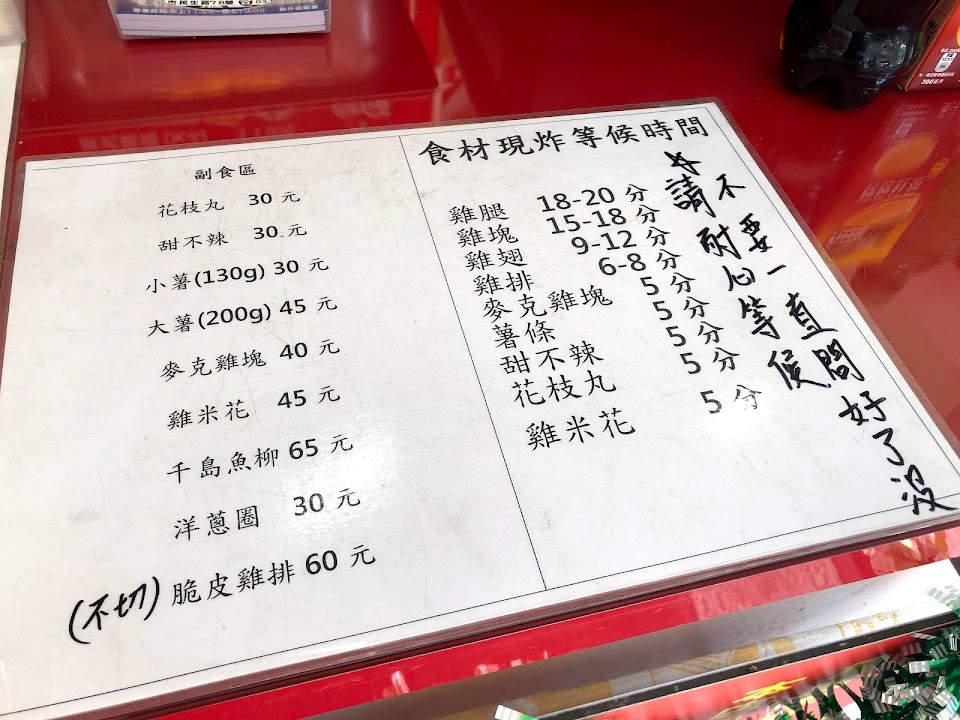 市民生路78號
副食區
花枝丸 30 元
甜不辣 30 元
小薯(130g) 30 元
大薯(200g) 45 元
麥克雞塊 40 元
雞米花 45 元
千島魚柳 65 元
洋蔥圈 30 元
(不切) 脆皮雞排 60 元
食材現炸等候時間
雞腿 18-20 分
雞塊 15-18 分
雞翅 9-12 分
雞排 6-8 分
麥克雞塊 5 分
薯條 5 分
甜不辣 5 分
花枝丸 5 分
雞米花 5 分
☆請耐心等候
不要一直問好了沒